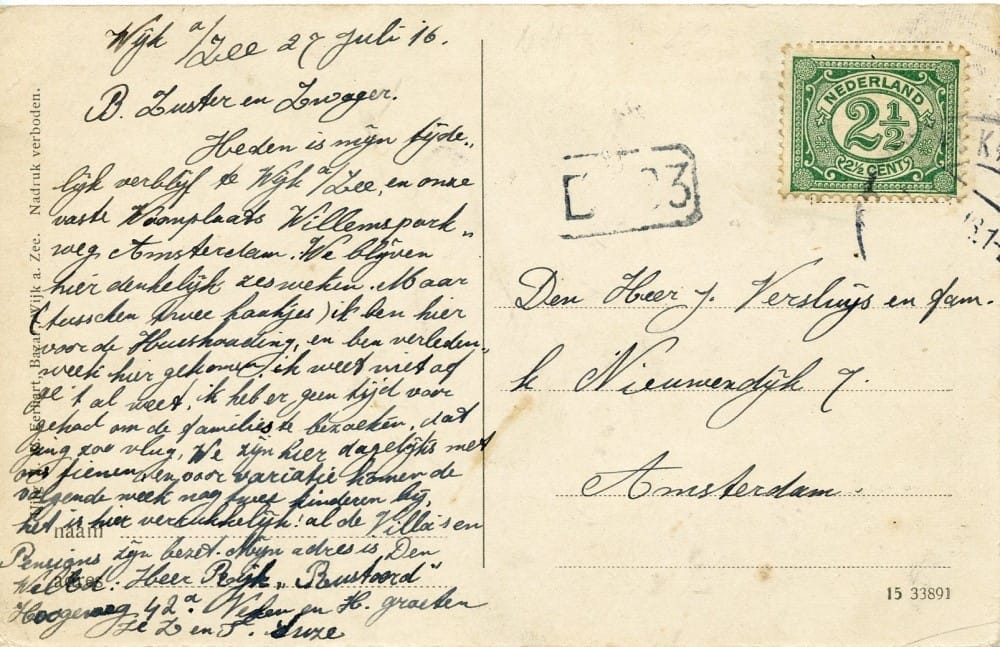 Wijk a/Zee 27 Juli 16.
B. Zuster en Zwager.
Heden is mijn tijde„
lijk verblijf te Wijk a/Zee, en onze
vaste Woonplaats Willemspark„
weg Amsterdam. We blijven
hier denkelijk zes weken. Maar
(tusschen twee haakjes) ik ben hier
voor de Huishouding, en ben verleden„
week hier gekomen! ik weet niet of
ge 't al weet, ik heb er geen tijd voor
gehad om de families te bezoeken, dat
ging zoo vlug. We zijn hier dagelijks met
ons tienen, en voor variatie komen de
volgende week nog twee kinderen bij,
het is hier verrukkelijk! al de Villa's en
Pensions zijn bezet. Mijn adres is Den
Weled. Heer Rijk „Rustoord"
Hoogeweg 42a. Wesen en H. groeten
Z en Z. Suze
Uitg. Gerhart, Bazar, Wijk a. Zee. Nadruk verboden.
naam
adres
NEDERLAND
2½
2½ CENT
3
K
Den Heer J. Versluijs en fam.
Nieuwendijk 7.
Amsterdam.
15 33891